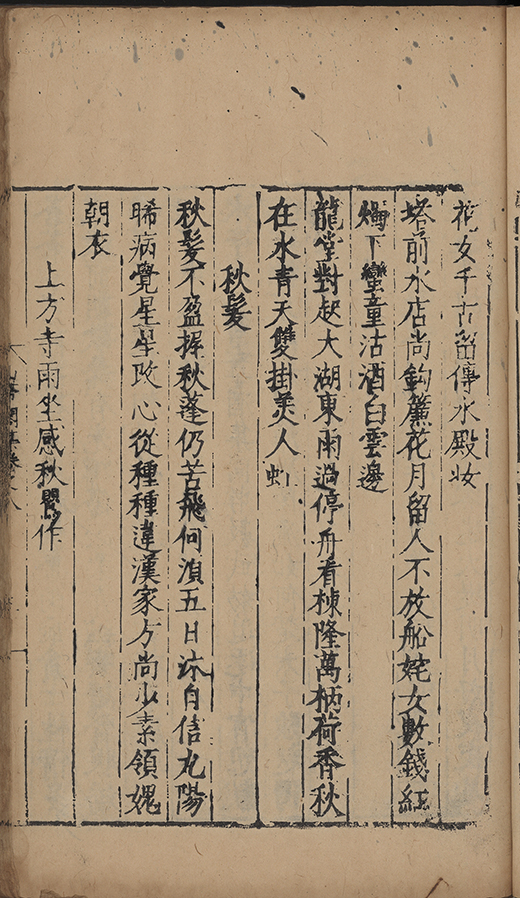 花女千古留傳水殿妆
塔前水店尚鈎簾花月留人不放船姹女數錢紅
燭下蠻童沽酒白雲邊
龍堂對起大湖東雨過停舟看棟隆萬柄荷香秋
在水青天雙掛美人虹
秋髮
秋髮不盈捀秋蓬仍苦飛何湏五日沐自信九陽
晞病覺星星改心從種種違漢家方尚少素領媿
朝衣
上方寺雨坐感秋鬢作